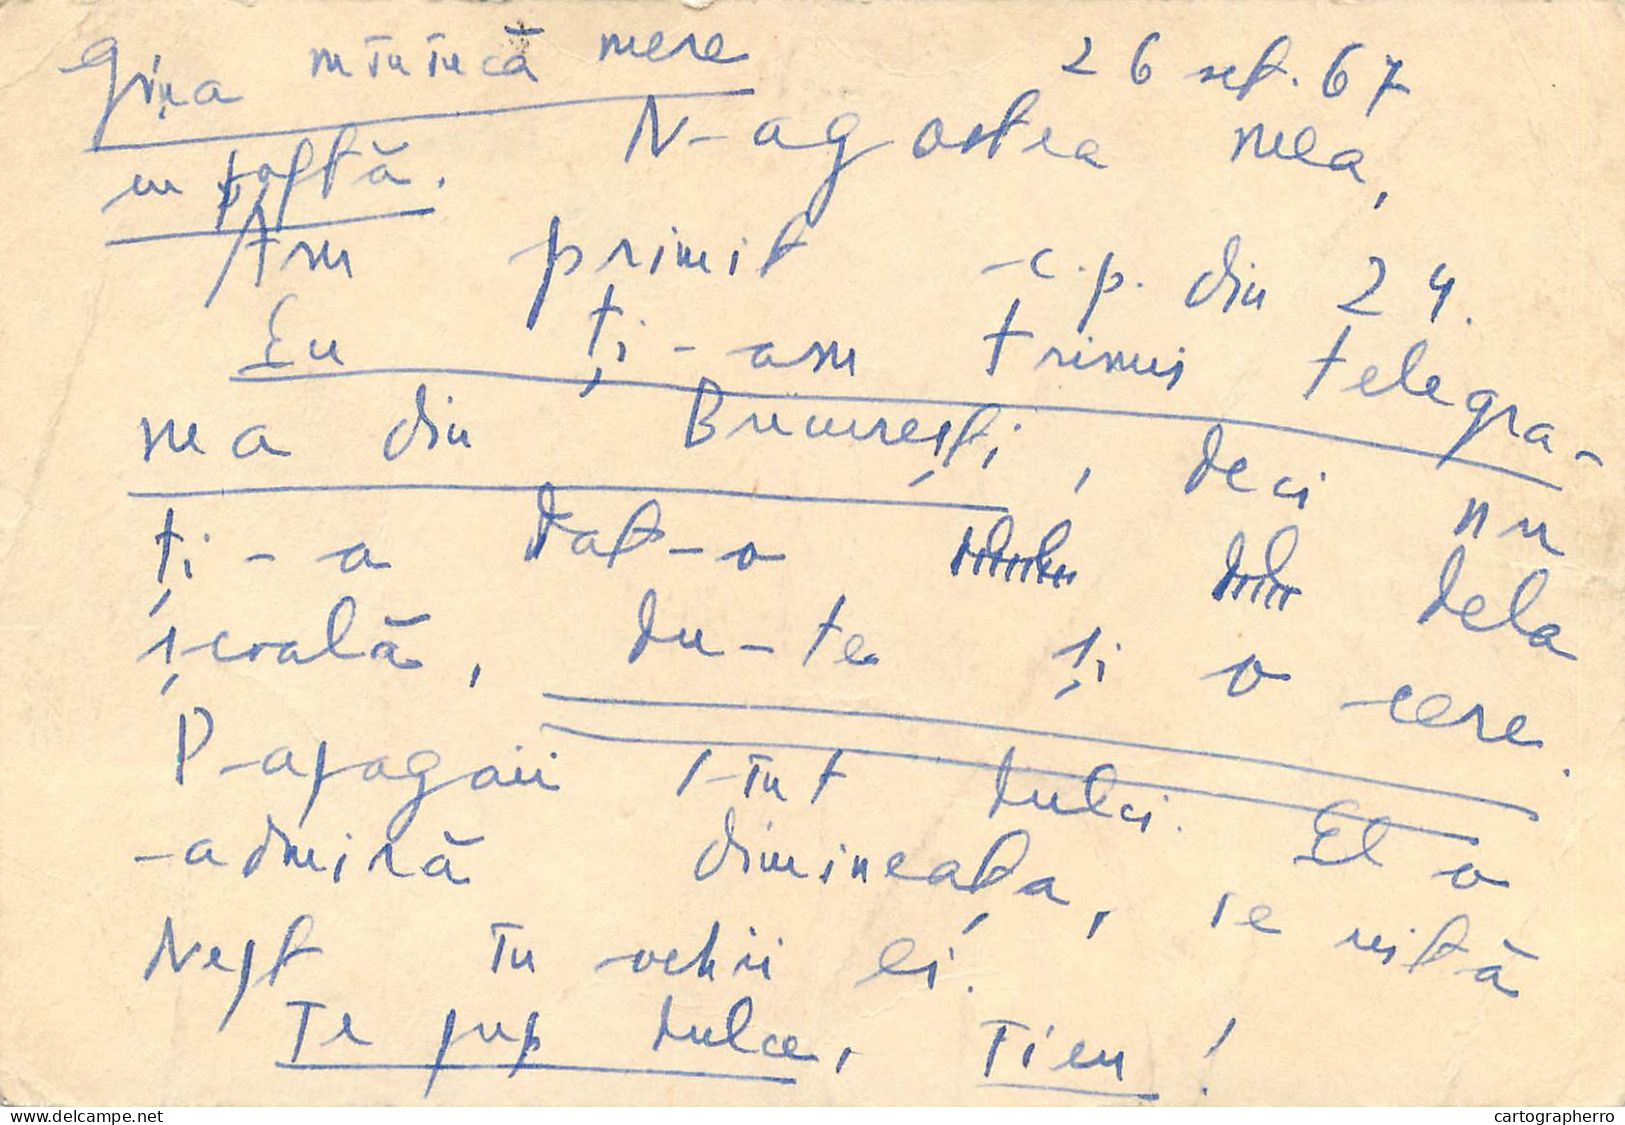 Gina mînîncă mere
cu poftă.
26 sept. 67
N-agostea mea,
Am primit c.p. din 24.
Eu ți-am trimis telegra-
ma din București, deci nu
ți-a dat-o dela
școală, du-te și o cere.
Papagaii sînt dulci. El o
admiră dimineața, se uită
în ochii ei.
Te pup dulce,
delcampe.net
cartographerro